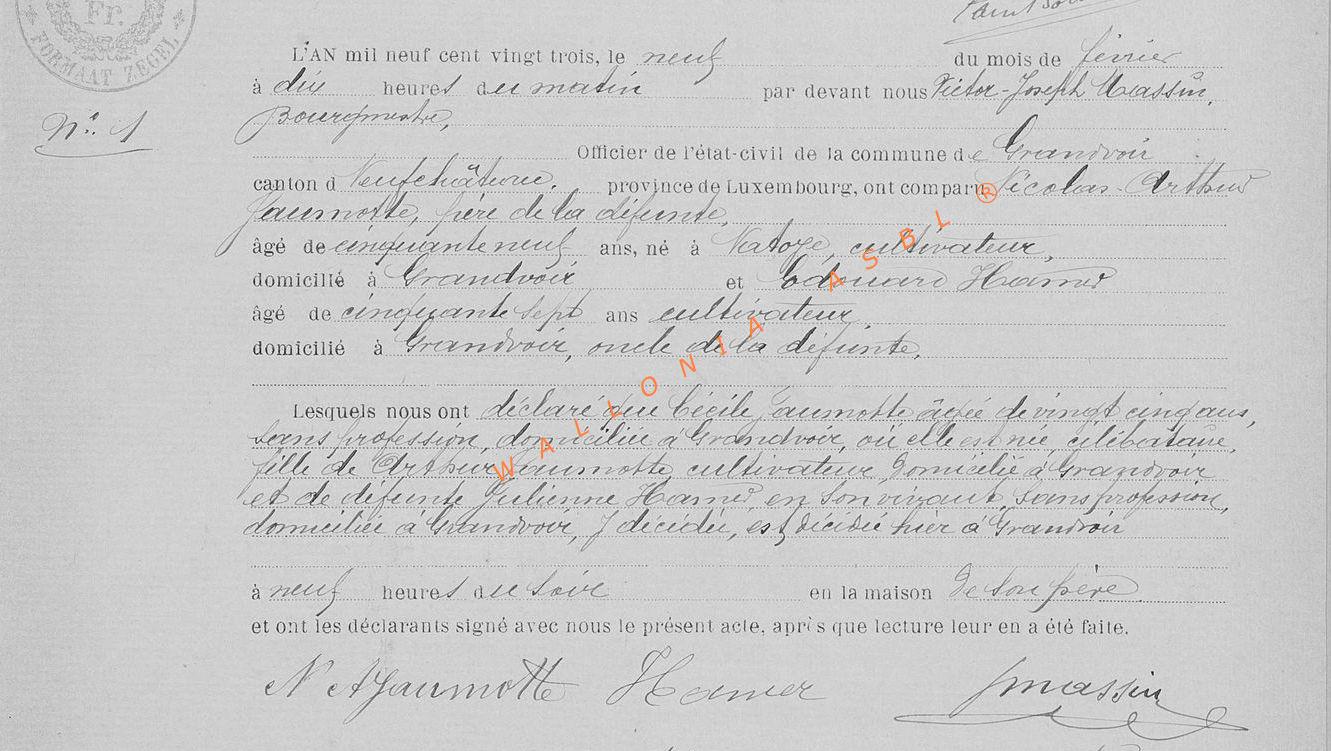 Fr.
FORMAAT ZEGEL
L'AN mil neuf cent vingt trois, le neuf du mois de février
à dix heures du matin par devant nous Victor-Joseph Massin,
N° 1
Bourgmestre,
Officier de l'état-civil de la commune de Grandvoir
canton d Neufchâteau, province de Luxembourg, ont comparu Nicolas-Arthur
Jaumotte, père de la défunte,
âgé de cinquante neuf ans, né à Natoye, cultivateur,
domicilié à Grandvoir et Edouard Hamer
âgé de cinquante sept ans cultivateur,
domicilié à Grandvoir, oncle de la défunte,
Lesquels nous ont déclaré que Cécile Jaumotte âgée de vingt cinq ans,
sans profession, domiciliée à Grandvoir, où elle est née, célibataire,
fille de Arthur Jaumotte cultivateur, domicilié à Grandvoir
et de défunte Julienne Hamer, en son vivant, sans profession,
domiciliée à Grandvoir, y décédée, est décédée hier à Grandvoir
à neuf heures du soir en la maison de son père
et ont les déclarants signé avec nous le présent acte, après que lecture leur en a été faite.
N A Jaumotte Hamer Jmassin
WALLONIA ASBL ®